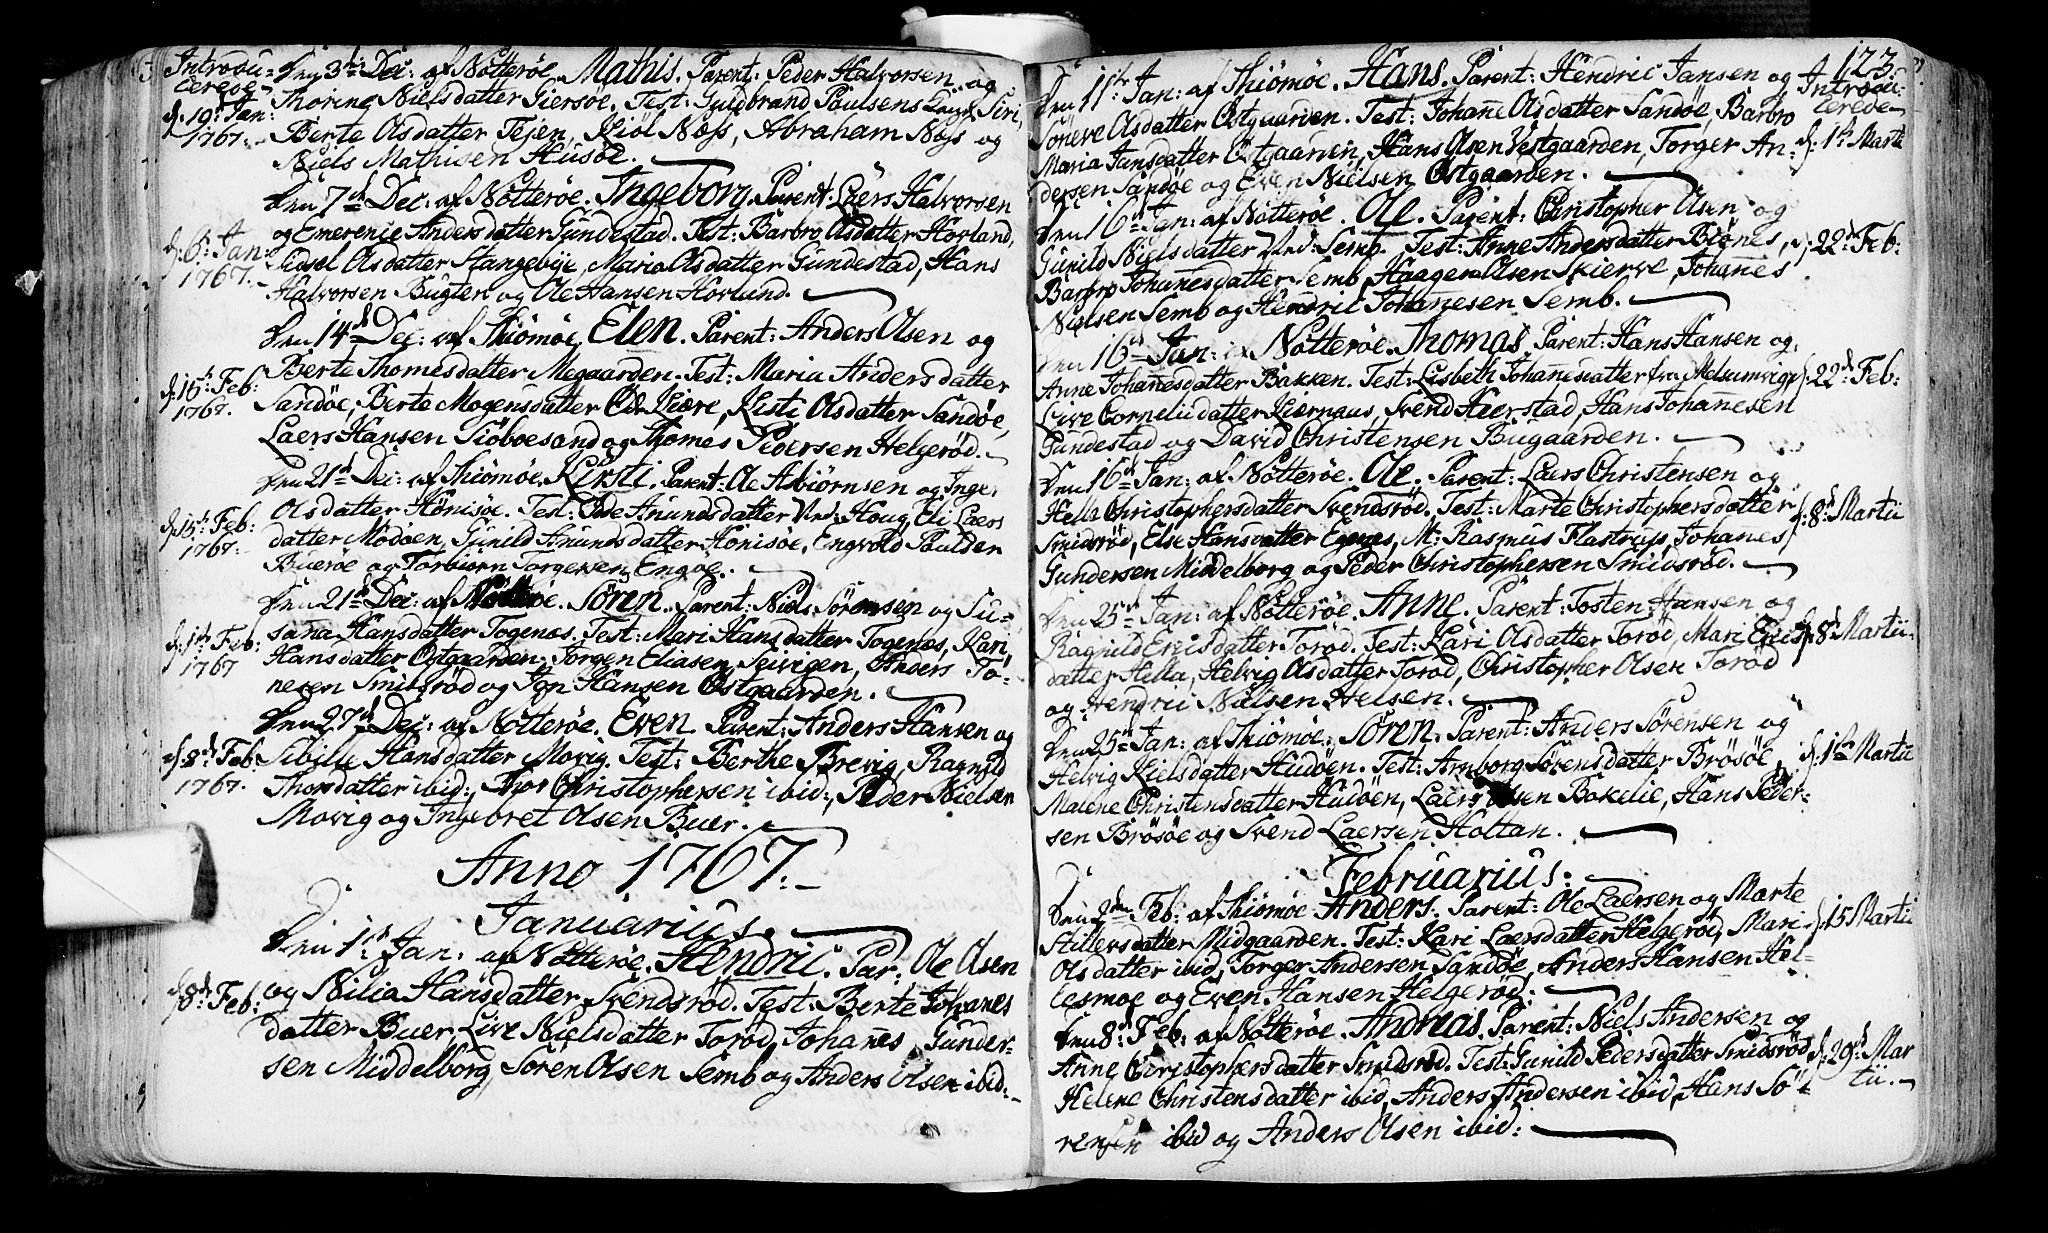 Introdu-
cerede
d: 19de Jan:
1767.
Den 3die Dec: af Nötteröe Mathis. Parent: Peder Halvorsen og
Thorine Nielsdatter Giersöe. Test: Guldbrand Poulsens Siri,
Berte Olsdatter Tejen, Kiöl Næss, Abraham Næss og
Niels Mathisen Husöe.
Den 7de Dec: af Nötteröe. Ingeborg. Parent: Laers Halvorsen
og Emerenie Andersdatter Gundestad. Test: Barbro Olsdatter Hovland,
d: 6te Jan:
1767.
Sidsel Olsdatter Stangebye, Maria Olsdatter Gundestad, Hans
Halvorsen Bugten og Ole Hansen Hovland.
Den 14de Dec: af Thiömöe, Elen. Parent: Anders Olsen og
Berte Thomesdatter Megaarden. Test: Maria Andersdatter
d: 15te Feb:
1767.
Sandöe, Berte Mogensdatter Kiære, Kisti Olsdatter Sandöe,
Laers Hansen Siöboesand og Thomes Pedersen Helgeröd.
Den 21de Dec: af Thiömöe, Kirsti. Parent: Ole Asbiörnsen og Inger
Olsdatter Hönisöe. Test: Anundsdatter Haug, Eli Laers
d: 15te Feb:
1767.
datter Mödöen, Gunild Amundsdatter Hönisöe, Engvold Poulsen
Bueröe og Torbiörn Torgersen Engöe.
Den 21de Dec: af Nötteröe. Sören. Parent: Niels Sörensen og Su-
sana Hansdatter Togenæs. Test: Mari Hansdatter Togenæs, Kari
d: 1te Feb:
1767
Hansdatter Östgaarden, Jörgen Eliasen, Anders Tö-
nesen Smidsröd og Jon Hansen Östgaarden.
Den 27de Dec: af Nötteröe. Even. Parent: Anders Hansen og
d: 8de Feb:
1767.
Sibille Hansdatter Movig. Test: Berthe Brevig, Ragnild
Thorsdatter ibid:, Thor Christophersen ibid:, Peder Nielsen
Movig og Ingebret Olsen Buer.
Anno 1767.
Januarius.
Den 1te Jan: af Nötteröe. Hendric. Par: Ole Olsen
d: 8de Feb:
og Nilia Hansdatter Svendsröd. Test: Berte Johanes
datter Buer, Live Nielsdatter Toröd, Johanes Gunder-
sen Middelborg, Sören Olsen Semb og Anders Olsen ibid:
123.
Introdu-
cerede
Den 11te Jan: af Thiömöe. Hans. Parent: Hendric Jansen og
Söneve Olsdatter Östgaarden. Test: Johane Olsdatter Sandöe, Barbro
Maria Jansdatter Östgaarden, Hans Olsen Vestgaarden, Torger An-
d: 1te Marti
dersen Sandöe og Even Nielsen Östgaarden.
Den 16de Jan: af Nötteröe. Ole. Parent: Christopher Olsen og
Gunild Nielsdatter Semb. Test: Anne Andersdatter Biönes,
d: 22de Feb:
Barbro Johanesdatter Semb, Haagen Olsen Skierve, Johanes
Nielsen Semb og Hendric Johanesen Semb.
Den 16de Jan: af Nötteröe. Thomas Parent: Hans Hansen og
Anne Johanesdatter Bakken. Test: Lisbeth Johanesdatter fra Melsumvige
d: 22de Feb:
Live Cornelidatter Kiernaas, Svend Hierstad, Hans Johanesen
Gundestad og David Christensen Bugaarden.
Den 16de Jan: af Nötteröe. Ole. Parent: Laers Christensen og
Helle Christophersdatter Svendsröd. Test: Marte Christophersdatter
d: 8de Martii
Smidsröd, Else Hansdatter Egenes, M: Rasmus Flastrup, Johanes
Gundersen Middelborg og Peder Christophersen Smidsröd.
Den 25de Jan: af Nötteröe. Anne. Parent: Tosten Hansen og
Ragnild Ericsdatter Toröd. Test: Kari Olsdatter Toröd, Mari Erics
d: 8de Martii
datter Hella, Helvig Olsdatter Toröd, Christopher Olsen Toröd
og Hendric Nielsen Helsen.
Den 25de Jan: af Thiömöe. Sören. Parent: Anders Sörensen og
Helvig Kielsdatter Hudöen. Test: Anborg Sörensdatter Brösöe,
d: 1te Martii
Malene Christensdatter Hudöen, Laers Olsen Bakelie, Hans Peder-
sen Brösöe og Svend Laersen Holtan.
Februarius.
Den 2den Feb: af Thiömöe Anders. Parent: Ole Laersen og Marte
Stillersdatter Midgaarden. Test: Kari Laersdatter Helgeröd, Mari
d: 15 Martii
Olsdatter ibid, Torger Andersen Sandöe, Anders Hansen Hol-
lesmoe og Even Hansen Helgeröd.
Den 8de Feb: af Nötteröe. Andreas. Parent: Niels Andersen og
Anne Christophersdatter Smidsröd. Test: Gunild Pedersdatter Smidsröd
d: 29de Mar
tii.
Helene Christensdatter ibid, Anders Andersen ibid, Hans Sö-
rensen ibid og Anders Olsen ibid: